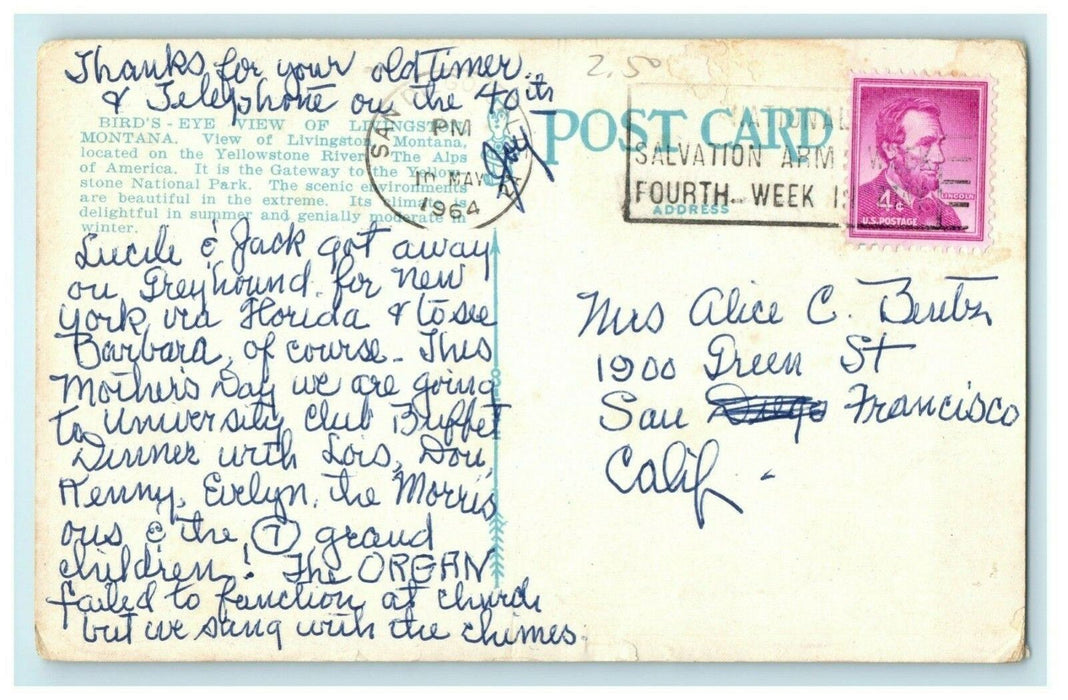 Thanks for your oldtimer
& Telephone on the 40ith
Joy
2.50
BIRD'S-EYE VIEW OF LIVINGSTON,
MONTANA. View of Livingston, Montana,
located on the Yellowstone River. The Alps
of America. It is the Gateway to the Yellow-
stone National Park. The scenic environments
are beautiful in the extreme. Its climate is
delightful in summer and genially moderate in
winter.
SAN
PM
10 MAY
1964
POST CARD
NATIONAL
SALVATION ARMY
FOURTH WEEK
ADDRESS
LINCOLN
4¢
U.S. POSTAGE
Lucile & Jack got away
on Greyhound for New
York via Florida & to see
Barbara, of course - This
Mother's Day we are going
to University Club Buffet
Dinner with Lois, Don,
Kenny, Evelyn, the Morris
ons & the 7 grand
children! The ORGAN
failed to function at church
but we sang with the chimes.
Mrs Alice C.
1900 Green St
San Diego Francisco
Calif.